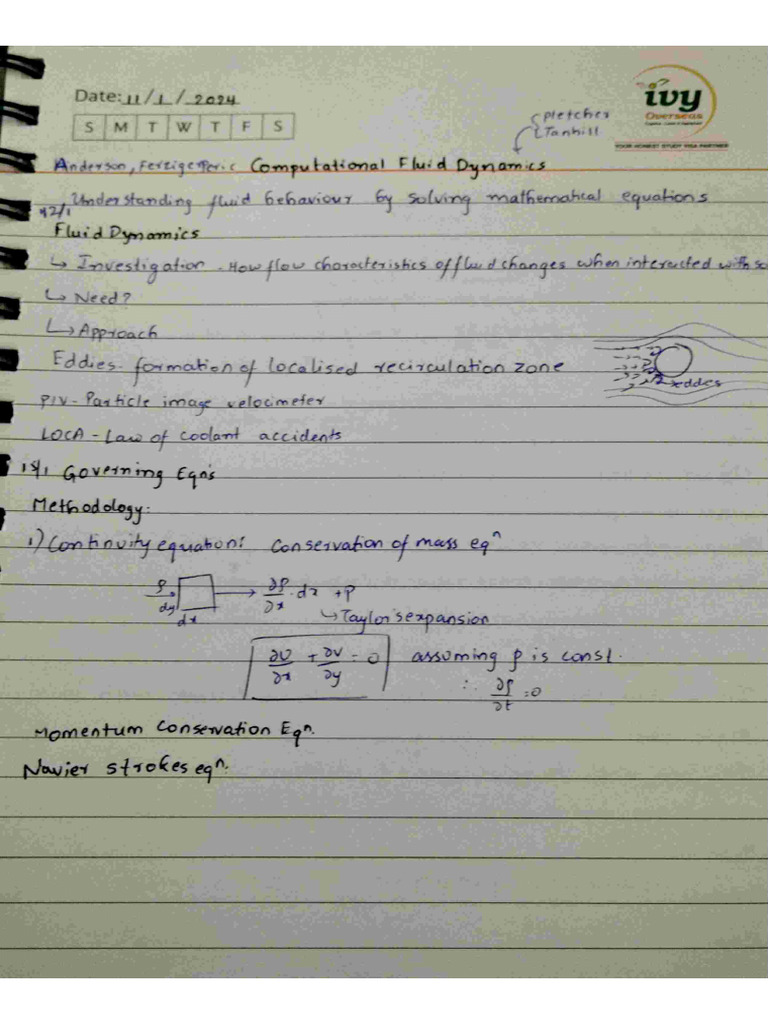 Date: 11/1/2024
S M T W T F S
ivy
Overseas
YOUR HONEST STUDY VISA PARTNER
Pletcher
Tanhill
Anderson, Ferziger Peric Computational Fluid Dynamics
Understanding fluid behaviour by solving mathematical equations
12/1
Fluid Dynamics
↳ Investigation - How flow characteristics of fluid changes when interacted with so
↳ Need?
↳ Approach
Eddies - formation of localised recirculation zone
eddies
PIV - Particle image velocimeter
LOCA - Law of coolant accidents
15/1 Governing Eqn's
Methodology:
1) Continuity equation: Conservation of mass eqⁿ
ρ → ∂ρ/∂x · dx + ρ
dy
dx
↳ Taylor's expansion
∂U/∂x + ∂V/∂y = 0 assuming ρ is const.
∴ ∂ρ/∂t = 0
Momentum Conservation Eqⁿ.
Navier strokes eqⁿ.